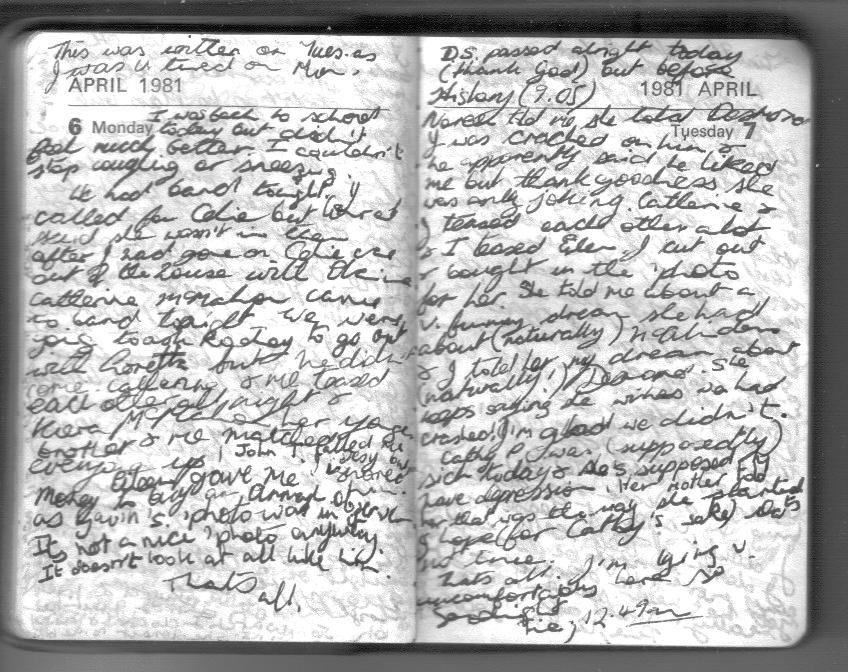 This was written on Tues. as
I was v. tired on Mon.
APRIL 1981
6 Monday
I was back to school
today but didn't
feel much better I couldn't
stop coughing or sneezing.
We had band tonight, I
called for but
said she wasn't in then
after I had gone on was
out of the house with
Catherine McMahon came
to band tonight we were
going to ask Rodney to go out
with Loretta but he didn't
come Catherine & me teased
each other all night &
Kiera her younger
brother & me matched
everyone up John
gave me
money to buy an
as Gavin S. 'photo was in
It's not a nice 'photo anyway.
It doesn't look at all like him.
Thats all.
D.S. passed alright today
(thank God) but before
History (9.05)
1981 APRIL
Tuesday 7
told me she told Desmond
I was cracked on him &
he apparently said he liked
me but thank goodness she
was only joking. Catherine &
I teased each other a lot
& I teased I cut out
& bought in the 'photo
for her. She told me about a
v. funny dream she had
about (naturally)
& I told her my dream about
(naturally!) Desmond. She
keeps saying she wishes we had
crashed! I'm glad we didn't.
Cathy P. was (supposedly)
sick today & she's supposed to
have depression. Her mother told
her that was the way she started
I hope (for Cathy's sake) thats
not true.
Thats all. I'm lying v.
uncomfortable here so
Goodnight
12.49am